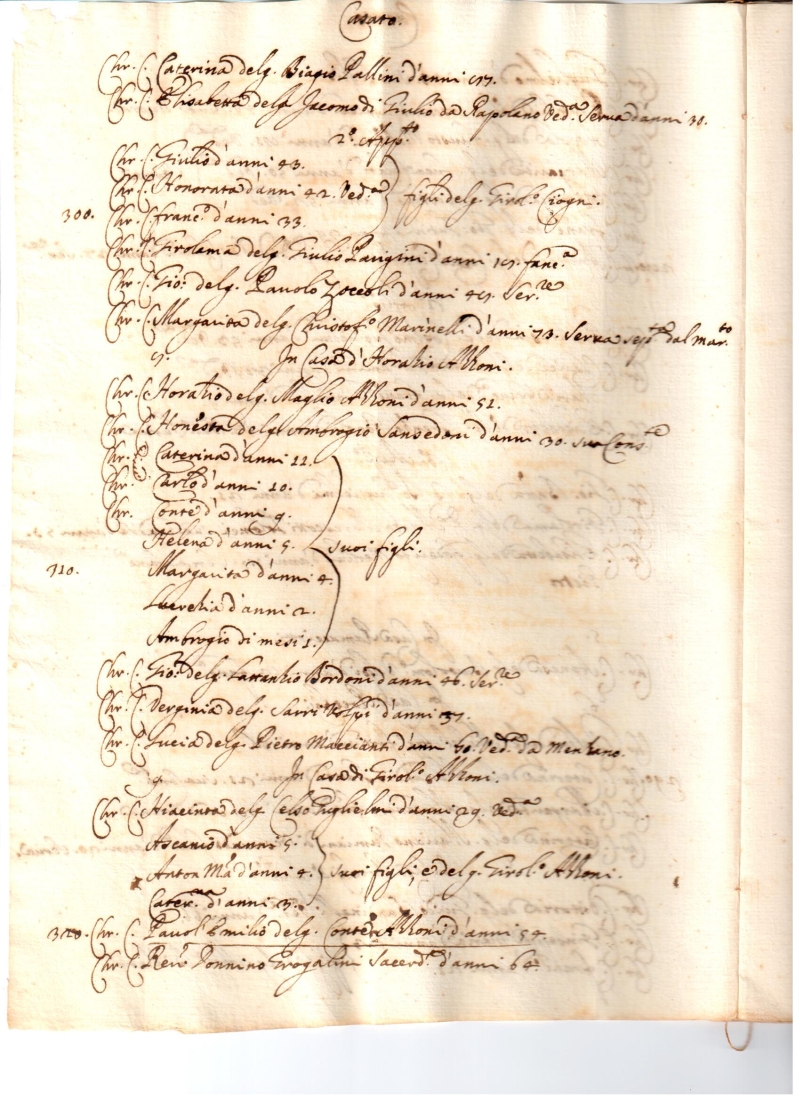 Casato.
Chr. C. Caterina del q. Biagio Pallini d'anni 47.
Chr. C. Elisabetta del q. Jacomo di Giulio da Rapolano Ved.a Serva d'anni 30.
2.o App.to
Chr. C. Giulio d'anni 43.
Chr. C. Honorata d'anni 42. Ved.a figli del q. Girol.o Ciogni.
300. Chr. C. Franc.o d'anni 33.
Chr. C. Girolama del q. Giulio Parigini d'anni 15. fanc.a
Chr. C. Gio: del q. Pauolo Zoccoli d'anni 45. Ser.re
Chr. C. Margarita del q. Christof.o Marinelli d'anni 73. Serva sep.ta dal mar.to
In Casa d'Horatio
Chr. C. Horatio del q. d'anni 51.
Chr. C. Honesta del q. Ambrogio Sansedoni d'anni 30. sua Cons.te
Chr. C. Caterina d'anni 11.
Chr. Carlo d'anni 10.
Chr. Conte d'anni 9.
Helena d'anni 5. suoi figli.
310. Margarita d'anni 4.
Lucretia d'anni 2.
Ambrogio di mesi 1.
Chr. C. Gio: del q. Lattantio Bordoni d'anni 46. Ser.re
Chr. C. Verginia del q. d'anni 37.
Chr. C. Lucia del q. Pietro Maccianti d'anni 60. Ved.a da Menzano.
9. In Casa di Girol.o
Chr. C. Hiacinta del q. Celso d'anni 29. Ved.a
Ascanio d'anni 5.
Anton M.a d'anni 4. suoi figli, e del q. Girol.o
Cater.na d'anni 3.
320. Chr. C. Pauol' Emilio del q. Conte d'anni 54
Chr. C. Rev.o Sacerd.e d'anni 64